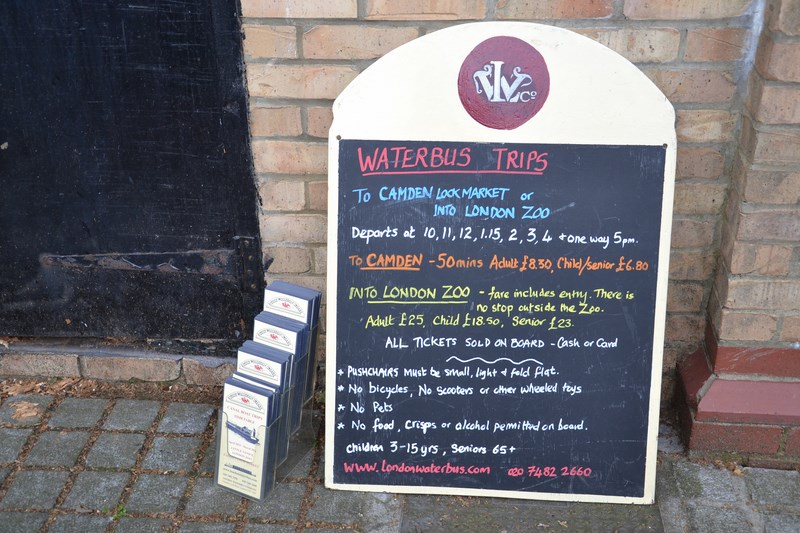 LWCo
WATERBUS TRIPS
To CAMDEN LOCK MARKET or
INTO LONDON ZOO
Departs at 10, 11, 12, 1.15, 2, 3, 4 + one way 5pm.
TO CAMDEN - 50 mins Adult £8.30, Child/senior £6.80
INTO LONDON ZOO - fare includes entry. There is
no stop outside the Zoo.
Adult £25, Child £18.50, Senior £23.
ALL TICKETS SOLD ON BOARD - Cash or Card
* PUSHCHAIRS MUST be small, light & fold flat.
* No bicycles, No Scooters or other wheeled toys
* No Pets
* No food, crisps or alcohol permitted on board.
Children 3-15 yrs, Seniors 65+
www.londonwaterbus.com 020 7482 2660